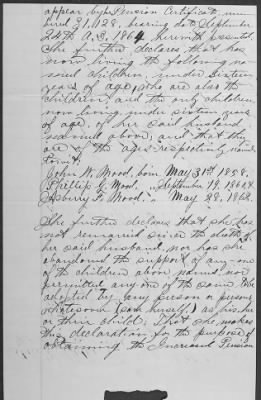 appear by Pension Certificate, num
bered 31,128. bearing date September
24th A.D. 1864, herewith presented
She further declares, that she has
now living the following na
med children, under sixteen
years of age, who are also the
children, and the only children,
now living under sixteen years
of age, of her said husband
named above; and that they
are of the ages respectively named
To wit;
John W. Wood, born May 31st 1858.
Phillip G. Wood. " September 19, 186
Asberry F. Wood. " May 28, 186
She further declares that she has
not remarried since the death of
her said husband, nor has she
abandoned the support of any one
of the children above named, nor
permitted any one of the same to be
adopted by any person or persons
as his, her
or their child; That she makes
this declaration for the purpose of
obtaining the Increased Pension